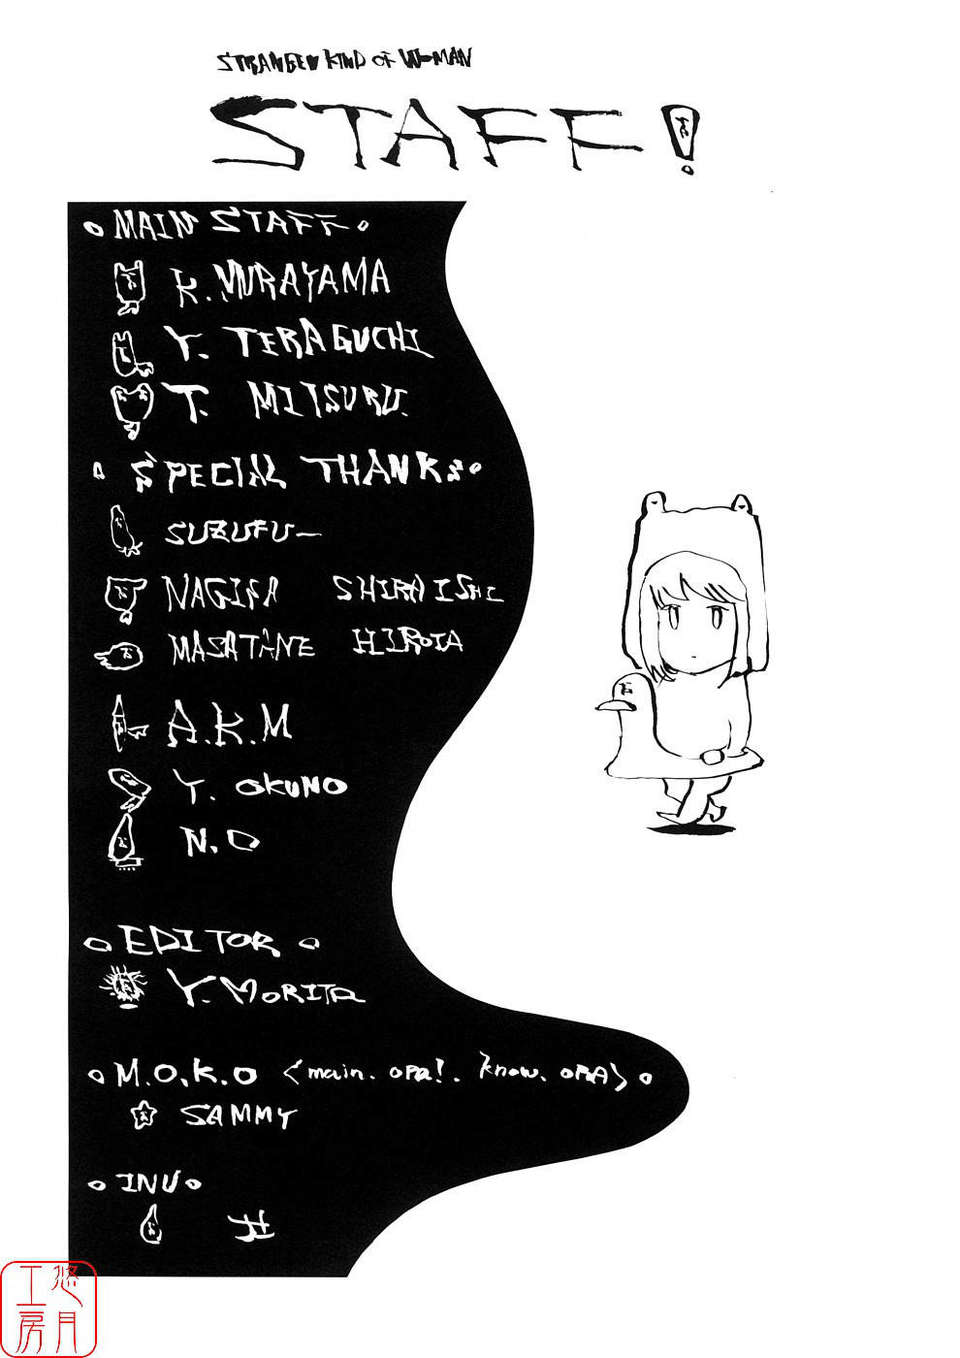 STRANGE KIND OF WOMAN
STAFF!
MAIN STAFF
K. MURAYAMA
Y. TERAGUCHI
T. MITSURU.
SPECIAL THANKS
SUZUFU—
NAGISA SHIRAISHI
MASATANE HIROTA
A.K.M
Y. OKUNO
N.D
EDITOR
Y. MORITA
M.O.K.O <main. OPA!. know. OPA>
SAMMY
INU
悠月工房